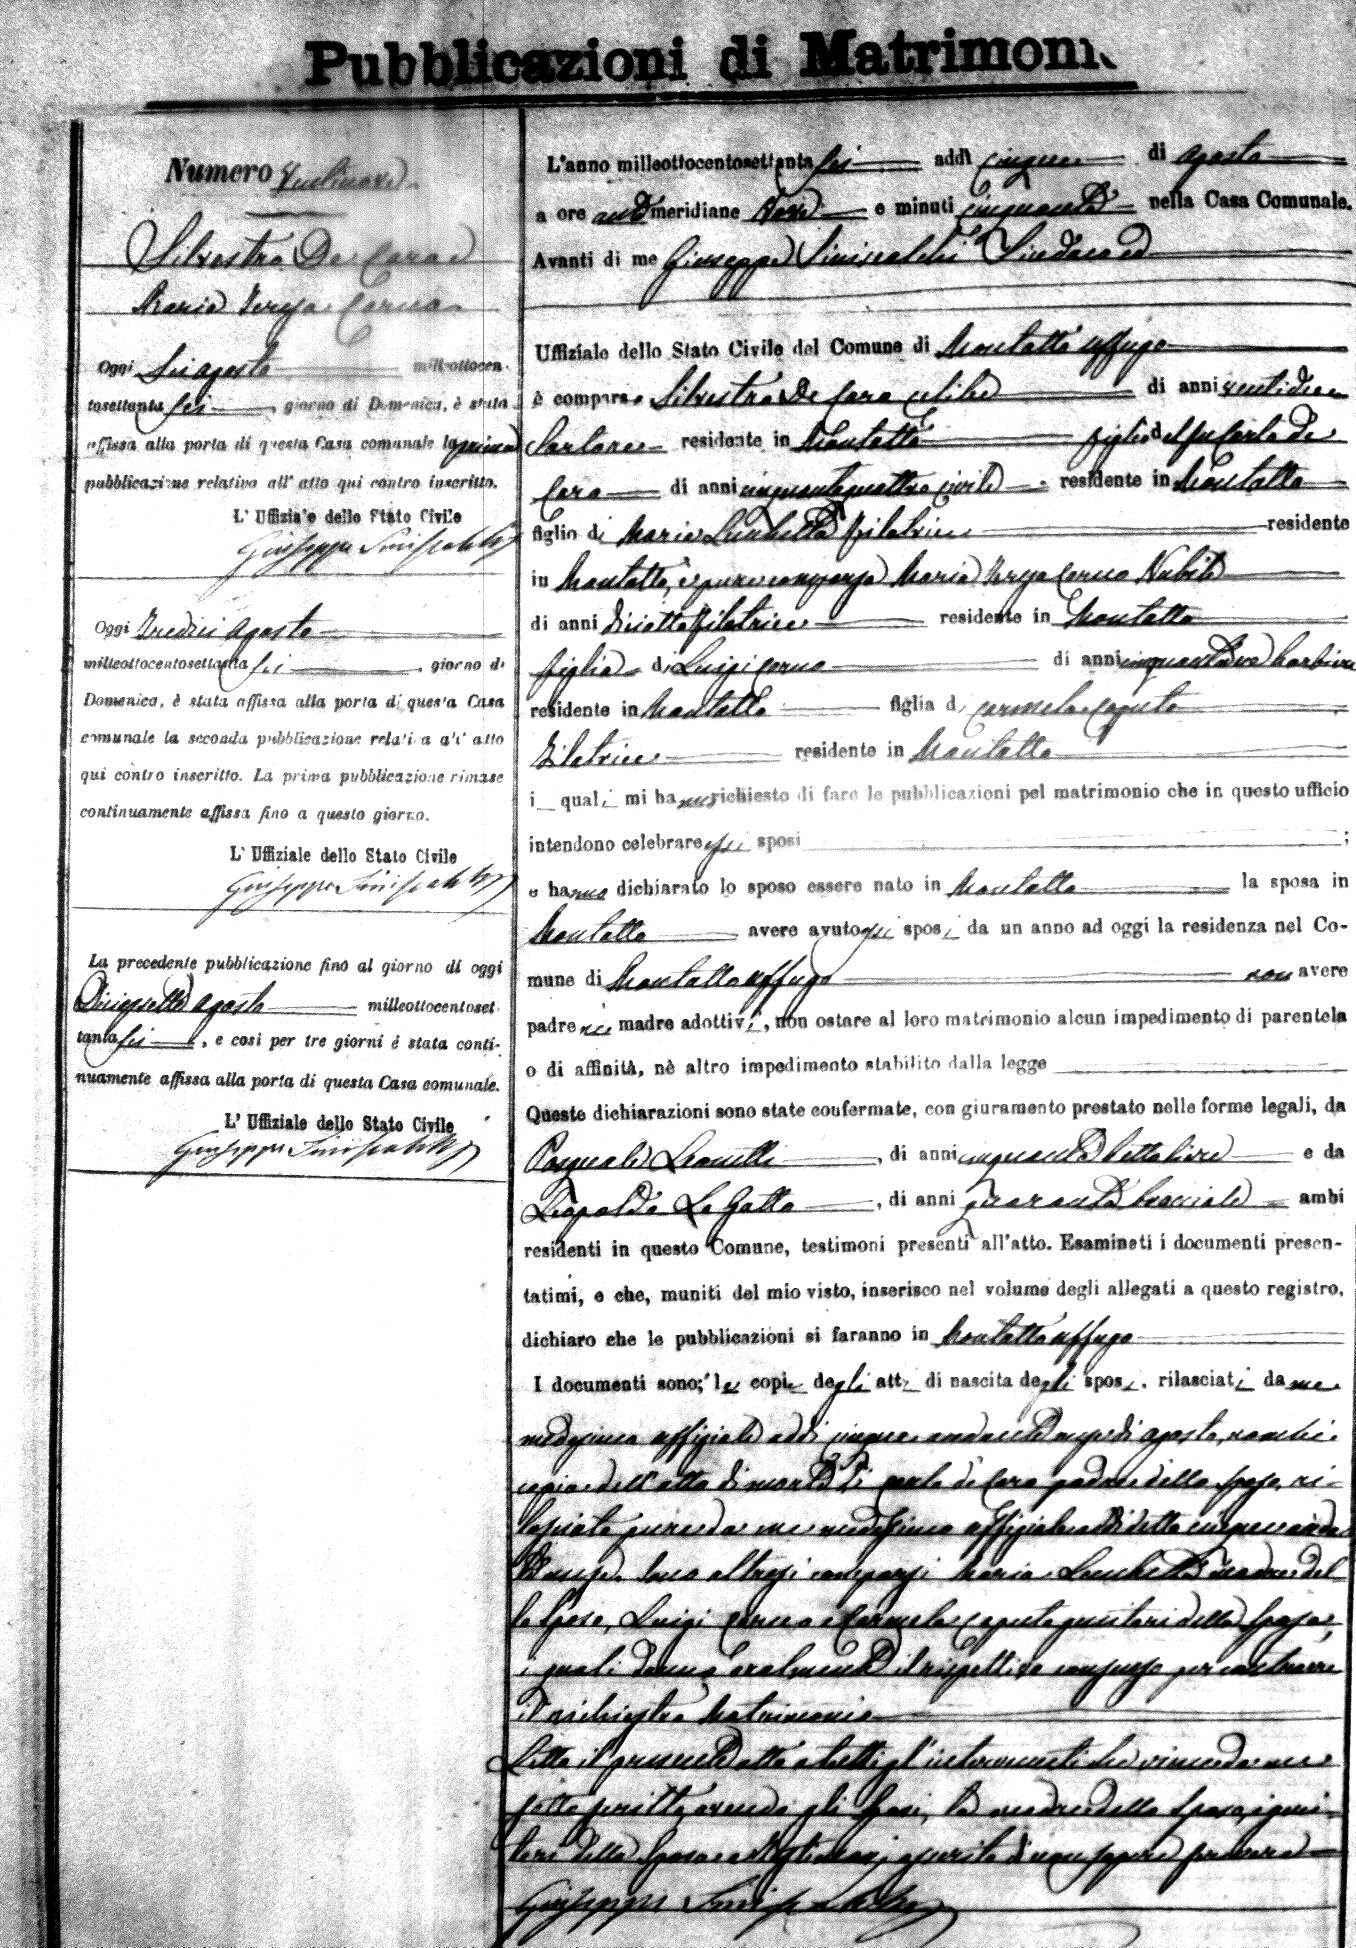 Pubblicazioni di Matrimoni
Numero Ventinove
Silvestro De Cara e
Maria Teresa Cornu
Oggi Sei agosto milleottocen-
tosettanta sei, giorno di Domenica, è stata
affissa alla porta di questa Casa comunale la prima
pubblicazione relativa all' atto qui contro inscritto.
L' Uffiziale dello Stato Civile
Giuseppe Siniscalchi
Oggi Tredici agosto
milleottocentosettanta sei, giorno di
Domenica, è stata affissa alla porta di questa Casa
comunale la seconda pubblicazione relativa all' atto
qui contro inscritto. La prima pubblicazione rimase
continuamente affissa fino a questo giorno.
L' Uffiziale dello Stato Civile
Giuseppe Siniscalchi
La precedente pubblicazione fino al giorno di oggi
Diciassette agosto milleottocentoset-
tanta sei, e così per tre giorni è stata conti-
nuamente affissa alla porta di questa Casa comunale.
L' Uffiziale dello Stato Civile
Giuseppe Siniscalchi
L'anno milleottocentosettanta sei addì cinque di agosto
a ore anti meridiane Nove e minuti cinquanta nella Casa Comunale.
Avanti di me Giuseppe Siniscalchi Sindaco ed
Uffiziale dello Stato Civile del Comune di Montalto Uffugo
è comparso Silvestro De Cara celibe di anni ventidue
Sartore residente in Montalto figlio del fu Carlo de
Cara di anni cinquantaquattro civile residente in Montalto
figlio di Maria Filatrice residente
in Montalto, è pure comparsa Maria Teresa Cornu Nubile
di anni diciotto filatrice residente in Montalto
figlia di Luigi Cornu di anni barbiere
residente in Montalto figlia di Carmela Caputo
Filatrice residente in Montalto
i quali mi hanno richiesto di fare le pubblicazioni pel matrimonio che in questo ufficio
intendono celebrare essi sposi ;
e hanno dichiarato lo sposo essere nato in Montalto la sposa in
Montalto avere avuto essi sposi da un anno ad oggi la residenza nel Co-
mune di Montalto Uffugo non avere
padre nè madre adottivi, non ostare al loro matrimonio alcun impedimento di parentela
o di affinità, nè altro impedimento stabilito dalla legge
Queste dichiarazioni sono state confermate, con giuramento prestato nelle forme legali, da
Pasquale Leonetti, di anni cinquanta bottaliere e da
Leopoldo Lo Gatto, di anni quaranta bracciale ambi
residenti in questo Comune, testimoni presenti all'atto. Esaminati i documenti presen-
tatimi, e che, muniti del mio visto, inserisco nel volume degli allegati a questo registro,
dichiaro che le pubblicazioni si faranno in Montalto Uffugo
I documenti sono; le copie degli atti di nascita degli sposi, rilasciati da me
medesimo uffiziale addì cinque andante mese di agosto, nonchè
copia dell'atto di morte di Carlo de Cara padre dello sposo, ri-
lasciata pure da me medesimo uffiziale addì detto cinque andan
te mese. Sono altresì comparsi Maria madre del
lo Sposo, Luigi Cornu e Carmela Caputo genitori della Sposa,
i quali danno oralmente il rispettivo consenso per contrarre
il richiesto Matrimonio
Letto il presente atto a tutti gl'intervenuti da me
sottoscritto avendo gli Sposi, la madre dello sposo, i geni-
tori della Sposa e i testimoni asserito di non sapere scrivere
Giuseppe Siniscalchi